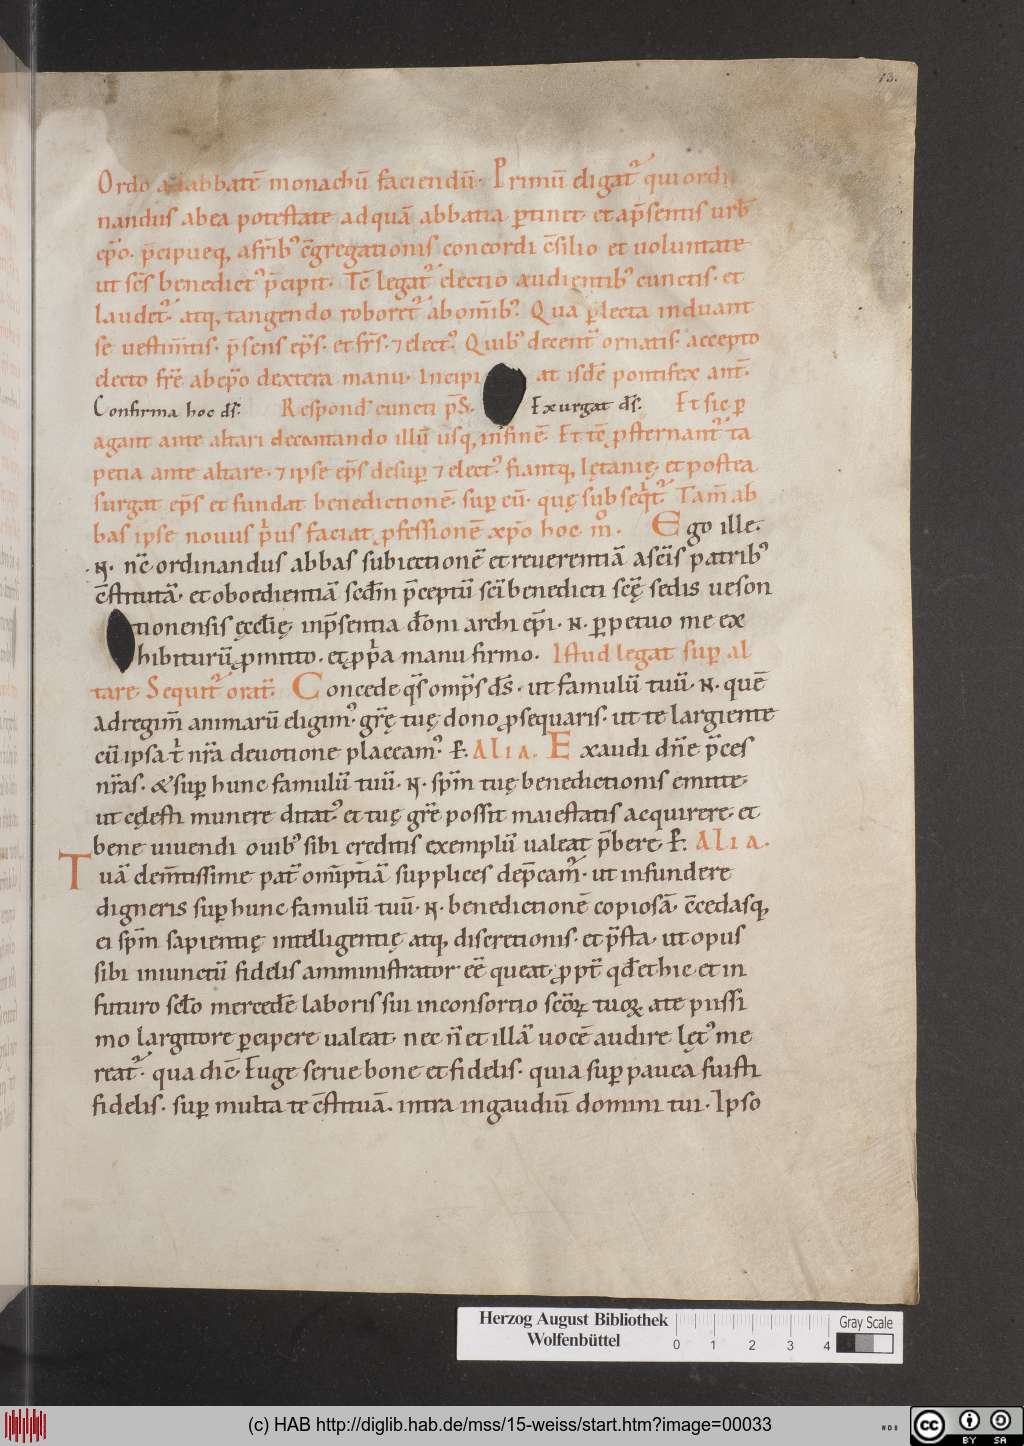 13.
Ordo ad abbatē monachū faciendū. Primū eligat᷑ qui ordi
nandus ab ea potestate ad quā abbatia ꝑtinet. et a p̄sentis urb̄
ep̄o. p̄cipueq, a fr̄ib᾽ c̄gregationis concordi c̄silio et uoluntate
ut sc̄s benedict᾽ p̄cipit. Tc̄ legat᷑ electio audientib᾽ cunctis. et
laudet᷑. atq, tangendo roboret᷑ ab om̄ib᾽. Qua ꝑlecta induant
se uestim̄tis. p̄sens ep̄s. et fr̄s. ⁊ elect᾽. Quib᾽ decent̄ ornatis. accepto
electo fr̄e ab ep̄o dextera manu. Incipi at isdē pontifex ant̄.
Confirma hoc ds̄. Respond̄ cuncti ps̄. Exurgat ds̄. Et sic ꝑ
agant ante altari decantando illū usq, in finē. Et tc̄ ꝓsternant᷑ ta
petia ante altare. ⁊ ipse ep̄s desuꝑ ⁊ elect᾽. fiantq, lętanię. et postea
surgat ep̄s et fundat benedictionē. suꝑ eū. quę subseqt᷑. Tam̄ ab
bas ipse nouus p̍us faciat ꝓfessionē xp̄o hoc m̊. Ego ille.
.N. nc̄ ordinandus abbas subiectionē et reuerentiā a scīs patrib᾽
c̄stitutā. et oboedientiā scd̄m p̄ceptū scī benedicti scę̄ sedis ueson
tionensis ęccl̄ię. in p̄sentia dōni archi ep̄i. N. ꝑpetuo me ex
hibiturū ꝓmitto. et ꝓp̍a manu firmo. Istud legat suꝑ al
tare. Sequit᷑ orat̄. Concede qs̄ omp̄s ds̄. ut famulū tuū. N. quē
ad regim̄ animarū eligim᾽. gr̄ę tuę dono ꝓsequaris. ut te largiente
cū ipsa t̍ nr̄a deuotione placeam᾽. ꝑ. ALIA. Exaudi dn̄e p̄ces
nr̄as. & suꝑ hunc famulū tuū. N. spm̄ tuę benedictionis emitte.
ut cęlesti munere ditat᾽. et tuę gr̄e possit maiestatis acquirere. et
bene uiuendi ouib᾽ sibi creditis exemplū ualeat p̄bere. ꝑ. ALIA.
Tuā clem̄tissime pat̄ om̄iptīā supplices dep̄cam᷑. ut infundere
digneris suꝑ hunc famulū tuū. N. benedictionē copiosā. c̄cedasq,
ei spm̄ sapientię intelligentię atq, discretionis. et p̄sta. ut opus
sibi iniunctū fidelis amministrator eē queat. ꝓpt̄ qd̄ et hic et in
futuro scl̄o mercedē laboris sui in consortio scōꝝ tuoꝝ a te piissi
mo largitore ꝑcipere ualeat. nec n̄ et illā uocē audire lęt᾽ me
reat᷑. qua diē. Euge serue bone et fidelis. quia suꝑ pauca fuisti
fidelis. suꝑ multa te c̄stituā. intra in gaudiū domini tui. Ipso
Herzog August Bibliothek
Wolfenbüttel
0 1 2 3 4
Gray Scale
(c) HAB http://diglib.hab.de/mss/15-weiss/start.htm?image=00033
WDB
CC BY SA